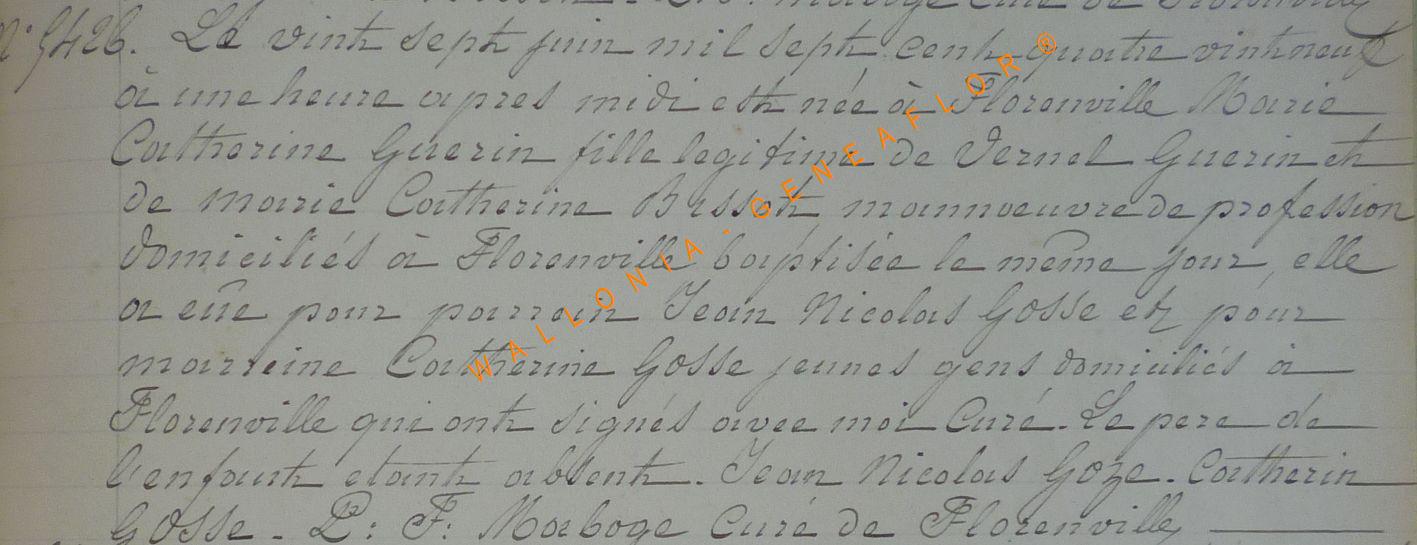 N° 5426. Le vint sept juin mil sept cent quatre vintneuf
à une heure apres midi est née à Florenville Marie
Catherine Guerin fille legitime de Vernel Guerin et
de marie Catherine Bissot mannoeuvre de profession
domiciliés à Florenville baptisée le même jour, elle
a eûe pour parrain Jean Nicolas Gosse et pour
marreine Catherine Gosse jeunes gens domiciliés à
Florenville qui ont signés avec moi Curé. Le pere de
l'enfant etant absent. Jean Nicolas Goze. Catherin
Gosse. P: F: Maboge Curé de Florenville
WALLONIA - GENEAFLOR®